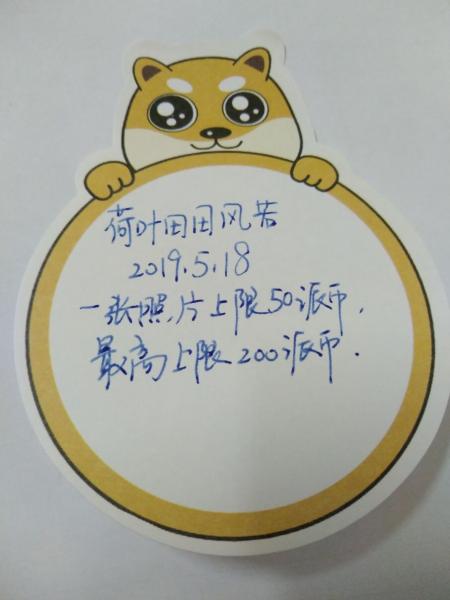 荷叶田田风若
2019.5.18
一张照片上限50派币.
最高上限200派币.